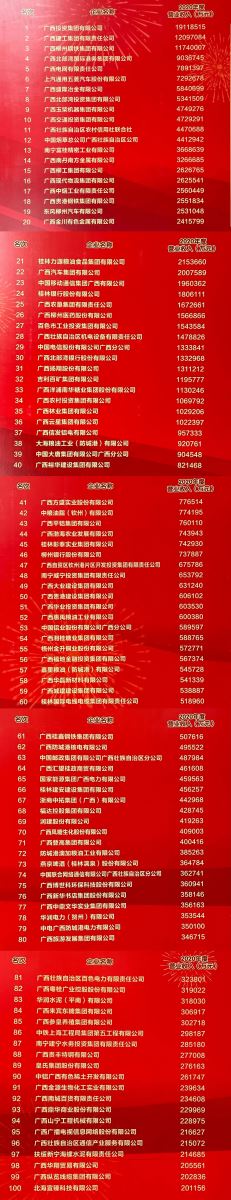 企业名称 2020年度
营业收入（万元）
1 广西投资集团有限公司 19118515
2 广西建工集团有限责任公司 12097084
3 广西柳州钢铁集团有限公司 11740007
4 广西北部湾国际港务集团有限公司 9036745
5 广西电网有限责任公司 7891397
6 上汽通用五菱汽车股份有限公司 7292678
7 广西盛隆冶金有限公司 5840699
8 广西北部湾投资集团有限公司 5041509
9 广西玉柴机器集团有限公司 4749276
10 广西交通投资集团有限公司 4729291
11 广西壮族自治区农村信用社联合社 4470688
12 中国烟草总公司广西壮族自治区公司 4412942
13 南宁富桂精密工业有限公司 3668639
14 广西南丹南方金属有限公司 3266685
15 广西柳工集团有限公司 2626765
16 广西现代物流集团有限公司 2625541
17 广西中烟工业有限责任公司 2560449
18 广西贵港钢铁集团有限公司 2551834
19 东风柳州汽车有限公司 2531048
20 广西金川有色金属有限公司 2415799
名次 企业名称 2020年度
营业收入（万元）
21 桂林力源粮油食品集团有限公司 2153660
22 广西汽车集团有限公司 2007589
23 中国移动通信集团广西有限公司 1960362
24 桂林银行股份有限公司 1806111
25 广西农垦集团有限责任公司 1672661
26 广西柳州医药股份有限公司 1566866
27 百色市工业投资集团有限公司 1543584
28 广西壮族自治区机电设备有限责任公司 1478826
29 中国电信股份有限公司广西分公司 1333841
30 广西北部湾银行股份有限公司 1332968
31 广西扬翔股份有限公司 1311212
32 吉利百矿集团有限公司 1195777
33 广西洋浦南华糖业集团股份有限公司 1130246
34 广西农村投资集团有限公司 1069792
35 广西林业集团有限公司 1029206
36 广西云星集团有限公司 1022397
37 广西信发铝电有限公司 957333
38 大海粮油工业（防城港）有限公司 920761
39 中国大唐集团有限公司广西分公司 904548
40 广西裕华建设集团有限公司 821468
名次 企业名称 2020年度
营业收入（万元）
41 广西方盛实业股份有限公司 776514
42 中粮油脂（钦州）有限公司 774195
43 广西平铝集团有限公司 760110
44 广西渤海农业发展有限公司 743943
45 桂林彰泰实业集团有限公司 742930
46 柳州银行股份有限公司 737887
47 广西自贸区钦州港片区开发投资集团有限责任公司 675786
48 南宁威宁投资集团有限责任公司 653792
49 广西大业建设集团有限公司 631240
50 广西景典建设集团有限公司 606102
51 广西华业投资集团有限公司 603530
52 广西惠禹粮油工业有限公司 600380
53 中国铝业股份有限公司广西分公司 589597
54 广西湘桂糖业集团有限公司 588765
55 梧州金升铜业股份有限公司 572771
56 广西福地金融投资集团有限公司 567374
57 嘉里粮油（防城港）有限公司 545728
58 广西华磊新材料有限公司 541339
59 广西城建建设集团有限公司 538887
60 桂林国际电线电缆集团有限责任公司 518960
名次 企业名称 2020年度
营业收入（万元）
61 广西桂鑫钢铁集团有限公司 507616
62 广西防城港核电有限公司 495522
63 中国邮政集团有限公司广西壮族自治区分公司 487984
64 广西汇望桂政商贸有限公司 461608
65 国家能源集团广西电力有限公司 459563
66 桂林建安建设集团有限公司 456257
67 浙商中拓集团（广西）有限公司 442968
68 福达控股集团有限公司 428745
69 润建股份有限公司 419263
70 广西凤糖生化股份有限公司 409003
71 广西登高集团有限公司 400416
72 防城港澳加粮油工业有限公司 385263
73 燕京啤酒（桂林漓泉）股份有限公司 364784
74 中国联合网络通信有限公司广西壮族自治区分公司 362741
75 广西博世科环保科技股份有限公司 360941
76 广西新华书店集团股份有限公司 358146
77 广西中鼎文华实业集团有限公司 356173
78 华润电力（贺州）有限公司 353544
79 中电广西防城港电力有限公司 350100
80 广西旅游发展集团有限公司 346715
名次 企业名称 2020年度
营业收入（万元）
81 广西壮族自治区百色电力有限责任公司 323801
82 广西粤桂广业控股股份有限公司 319022
83 华润水泥（平南）有限公司 318030
84 广西来宾东糖集团有限公司 306917
85 广西参皇养殖集团有限公司 302718
86 中铁上海工程局集团第五工程有限公司 298187
87 南宁建宁水务投资集团有限责任公司 285180
88 广西贵丰特钢有限公司 277008
89 皇氏集团股份有限公司 276163
90 中铝广西有色稀土开发有限公司 261747
91 广西金源生物化工实业有限公司 239634
92 广西南城百货有限责任公司 229608
93 广西鼎华商业股份有限公司 229269
94 广西山宁工程机械有限公司 228975
95 广西广播电视信息网络股份有限公司 216096
96 广西壮族自治区通信产业服务有限公司 215072
97 扶绥新宁海螺水泥有限责任公司 214685
98 广西华翔贸易有限公司 205561
99 广西纵览线缆集团有限公司 201628
100 北海蓝磁科技有限公司 201156